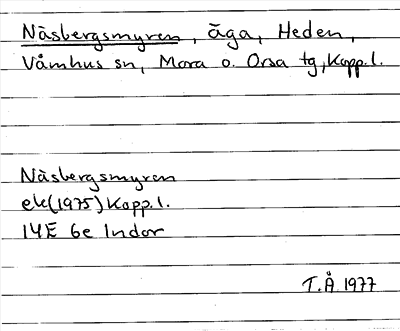 Näsbergsmyren, äga, Heden,
Våmhus sn, Mora o. Orsa tg, Kopp.l.
Näsbergsmyren
ek(1975) Kopp.l.
14E 6e Indor
T.Å 1977